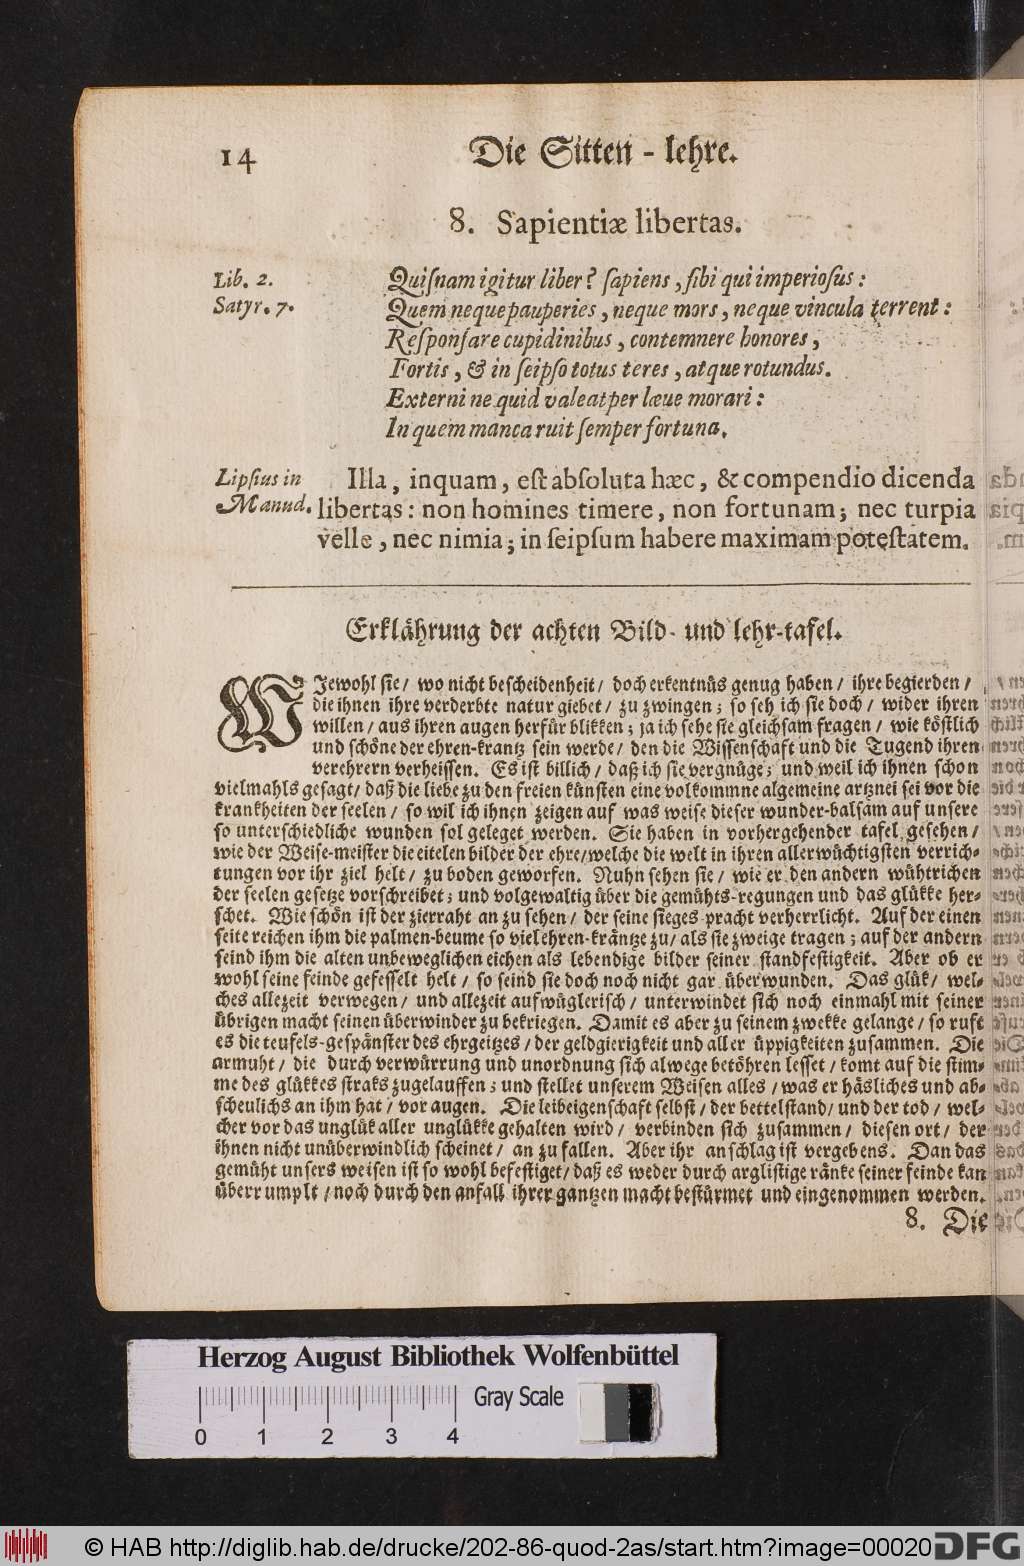 14
Die Sitten - lehre.
8. Sapientiæ libertas.
Lib. 2.
Satyr. 7.
Quiſnam igitur liber? ſapiens, ſibi qui imperioſus:
Quem neque pauperies, neque mors, neque vincula terrent:
Reſponſare cupidinibus, contemnere honores,
Fortis, & in ſeipſo totus teres, atque rotundus.
Externi ne quid valeat per læue morari:
In quem manca ruit ſemper fortuna.
Lipſius in
Manud.
Illa, inquam, eſt abſoluta hæc, & compendio dicenda
libertas: non homines timere, non fortunam; nec turpia
velle, nec nimia; in ſeipſum habere maximam poteſtatem.
Erklährung der achten Bild- und lehr-tafel.
WJewohl sie/ wo nicht bescheidenheit/ doch erkentnüs genug haben/ ihre begierden/
die ihnen ihre verderbte natur giebet/ zu zwingen; so seh ich sie doch/ wider ihren
willen/ aus ihren augen herfür blikken; ja ich sehe sie gleichsam fragen/ wie köstlich
und schöne der ehren-krantz sein werde/ den die Wissenschaft und die Tugend ihren
verehrern verheissen. Es ist billich/ daß ich sie vergnüge; und weil ich ihnen schon
vielmahls gesagt/ daß die liebe zu den freien künsten eine volkommne algemeine artznei sei vor die
krankheiten der seelen/ so wil ich ihnen zeigen auf was weise dieser wunder-balsam auf unsere
so unterschiedliche wunden sol geleget werden. Sie haben in vorhergehender tafel gesehen/
wie der Weise-meister die eitelen bilder der ehre/ welche die welt in ihren allerwüchtigsten verrich-
tungen vor ihr ziel helt/ zu boden geworfen. Nuhn sehen sie/ wie er den andern wühtrichen
der seelen gesetze vorschreibet; und volgewaltig über die gemühts-regungen und das glükke her-
schet. Wie schön ist der zierraht an zu sehen/ der seine sieges-pracht verherrlicht. Auf der einen
seite reichen ihm die palmen-beume so viel ehren-kräntze zu/ als sie zweige tragen; auf der andern
seind ihm die alten unbeweglichen eichen als lebendige bilder seiner standfestigkeit. Aber ob er
wohl seine feinde gefesselt helt/ so seind sie doch noch nicht gar überwunden. Das glük/ wel-
ches allezeit verwegen/ und allezeit aufwüglerisch/ unterwindet sich noch einmahl mit seiner
übrigen macht seinen überwinder zu bekriegen. Damit es aber zu seinem zwekke gelange/ so ruft
es die teufels-gespänster des ehrgeitzes/ der geldgierigkeit und aller üppigkeiten zusammen. Die
armuht/ die durch verwürrung und unordnung sich alwege betöhren lesset/ komt auf die stim-
me des glükkes straks zugelauffen; und stellet unserem Weisen alles/ was er häsliches und ab-
scheulichs an ihm hat/ vor augen. Die leibeigenschaft selbst/ der bettelstand/ und der tod/ wel-
cher vor das unglük aller unglükke gehalten wird/ verbinden sich zusammen/ diesen ort/ der
ihnen nicht unüberwindlich scheinet/ an zu fallen. Aber ihr anschlag ist vergebens. Dan das
gemüht unsers weisen ist so wohl befestiget/ daß es weder durch arglistige ränke seiner feinde kan
überrumplt/ noch durch den anfall ihrer gantzen macht bestürmet und eingenommen werden.
8. Die
Herzog August Bibliothek Wolfenbüttel
Gray Scale
0 1 2 3 4
© HAB http://diglib.hab.de/drucke/202-86-quod-2as/start.htm?image=00020
DFG